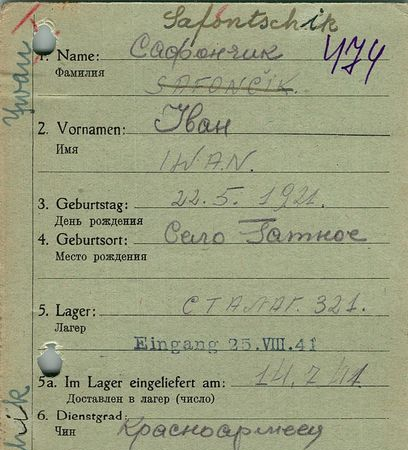 Safontschik
1. Name: Сафончик
474
Фамилия
SAFONČIK.
2. Vornamen: Іван
Имя
IWAN.
3. Geburtstag: 22.5. 1921.
День рождения
4. Geburtsort: Село Гатное
Место рождения
5. Lager: СТАЛАГ. 321.
Лагер
Eingang 25.VIII.41
5a. Im Lager eingeliefert am: 14.7 41.
Доставлен в лагер (число)
6. Dienstgrad: Красноармеец
Чин
Ywan